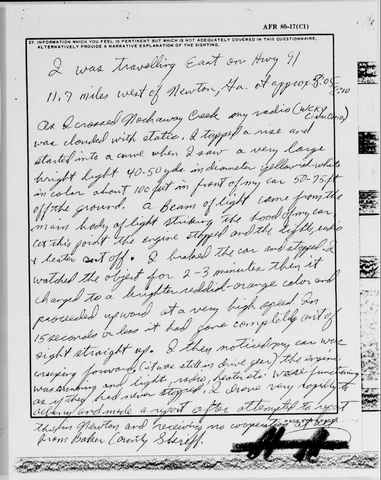 AFR 80-17(C1)
27. INFORMATION WHICH YOU FEEL IS PERTINENT BUT WHICH IS NOT ADEQUATELY COVERED IN THIS QUESTIONNAIRE.
ALTERNATIVELY PROVIDE A NARRATIVE EXPLANATION OF THE SIGHTING.
I was travelling East on Hwy 91
11.7 miles west of Newton, Ga. at approx 5:05
As I crossed Nochaway Creek my radio (WCKY
was clouded with static. I topped a rise and
started into a curve when I saw a very large
bright light 40-50 yds in diameter yellow-white
in color about 100 feet in front of my car 50-75 ft
off the ground. A beam of light came from the
main body of light striking the hood of my car
(at this point the engine stopped and the lights, radio
& heater cut off. I braked the car and stopped &
watched the object for 2-3 minutes then it
changed to a brighter reddish-orange color and
proceeded upward at a very high speed. In
15 seconds or less it had gone completely out of
sight straight up. I then noticed my car was
creeping forward, (it was still in drive gear) the engine
was running and light, radio, heater etc. were functioning
as if they had never stopped. I drove very rapidly to
and made a report after attempting to report
this in Newton and receiving no cooperation
from Baker County Sheriff.